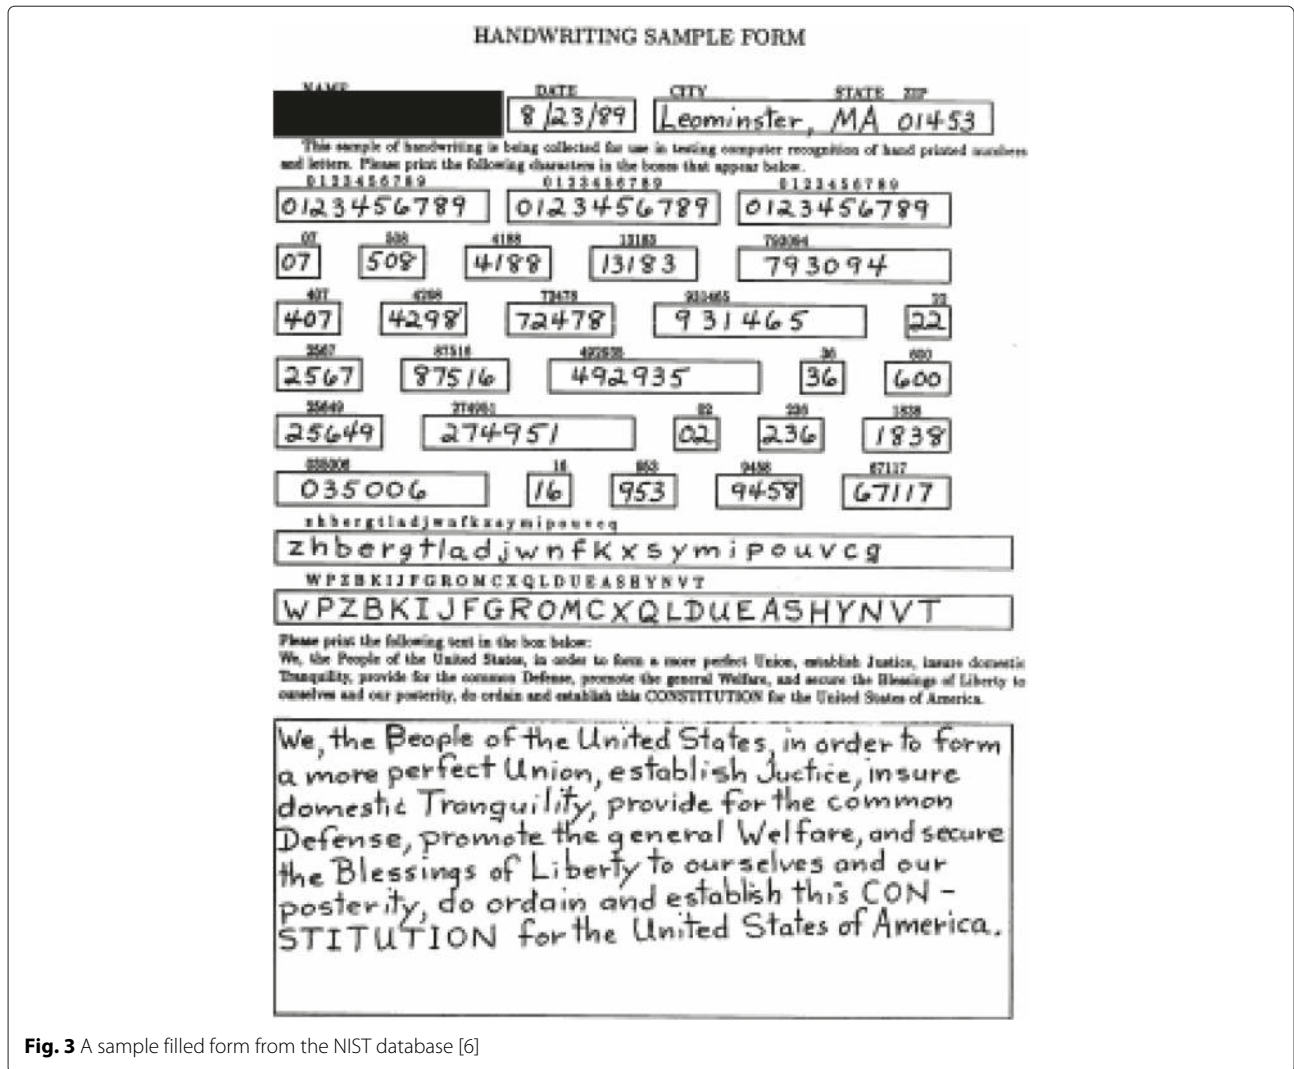 HANDWRITING SAMPLE FORM
NAME DATE CITY STATE ZIP
8/23/89 Leominster, MA 01453
This sample of handwriting is being collected for use in testing computer recognition of hand printed numbers
and letters. Please print the following characters in the boxes that appear below.
0123456789 0123456789 0123456789
0123456789 0123456789 0123456789
07 508 4188 13183 793094
07 508 4188 13183 793094
407 4298 72478 931465 22
407 4298 72478 931465 22
2567 87516 492935 36 600
2567 87516 492935 36 600
25649 274951 02 236 1838
25649 274951 02 236 1838
035006 16 953 9458 67117
035006 16 953 9458 67117
zhbergtladjwnfkxsymipouvcq
WPZBKIJFGROMCXQLDUEASHYNVT
WPZBKIJFGROMCXQLDUEASHYNVT
Please print the following text in the box below:
We, the People of the United States, in order to form a more perfect Union, establish Justice, insure domestic
Tranquility, provide for the common Defense, promote the general Welfare, and secure the Blessings of Liberty to
ourselves and our posterity, do ordain and establish this CONSTITUTION for the United States of America.
We, the People of the United States, in order to form
a more perfect Union, establish Juctice, insure
domestic Tranquility, provide for the common
Defense, promote the general Welfare, and secure
the Blessings of Liberty to ourselves and our
posterity, do ordain and establish this CON-
STITUTION for the United States of America.
Fig. 3 A sample filled form from the NIST database [6]